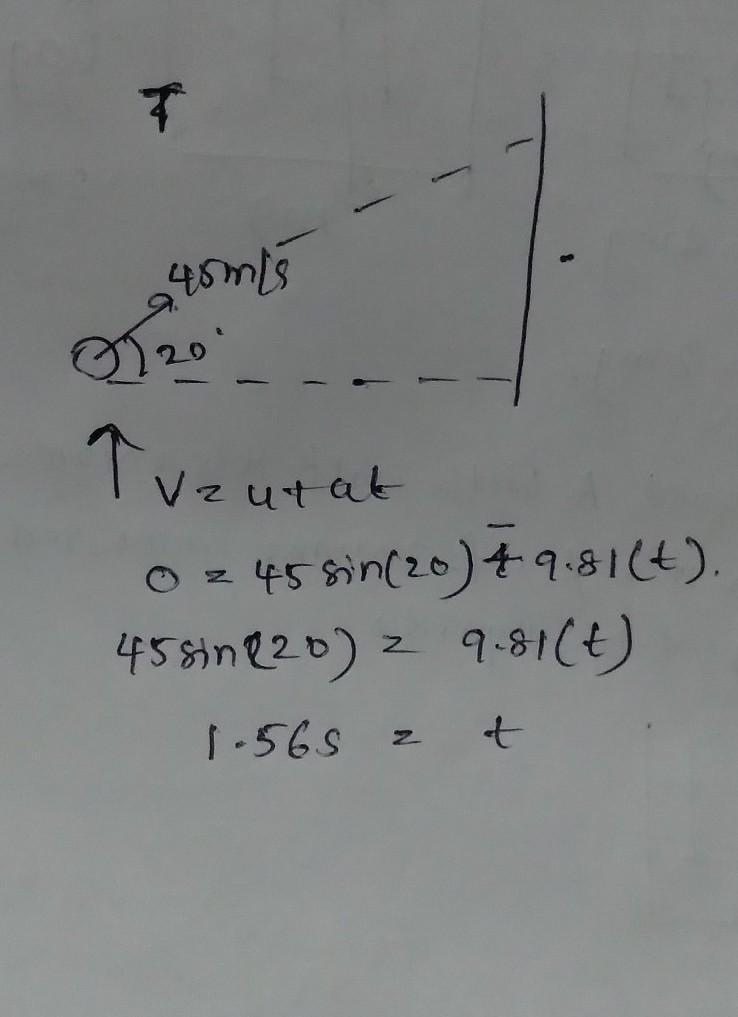 45m/s
20°
↑ v = u + at
0 = 45 sin(20) - 9.81(t).
45 sin(20) = 9.81(t)
1.56s = t